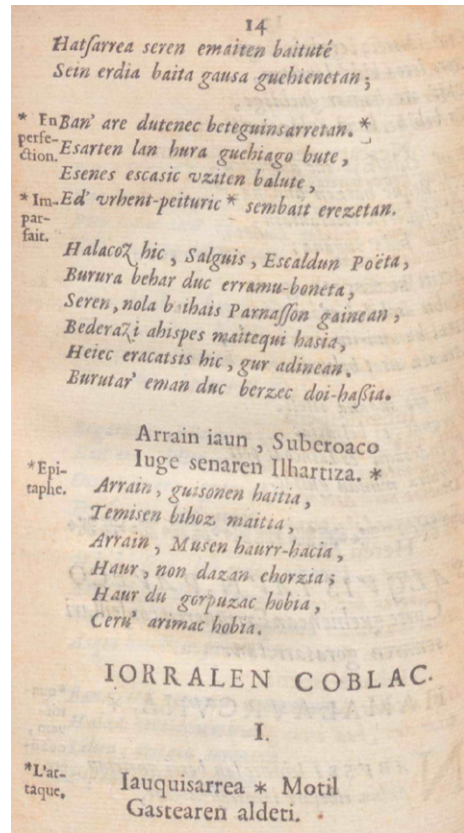 14
Hatſarrea seren emaiten baituté
Sein erdia baita gausa guehienetan;
* En perfe-
ction.
Ban' are dutenec beteguinsarretan. *
Esarten lan hura guehiago bute,
Esenes escasic vziten balute,
* Im-
par-
fait.
Ed' vrhent-peituric * sembait erezetan.
Halacoz hic, Salguis, Escaldun Poëta,
Burura behar duc erramu-boneta,
Seren, nola b ihais Parnaſſon gainean,
Bederazi ahispes maitequi hasia,
Heiec eracatsis hic, gur adinean.
Burutar' eman duc berzec doi-haßia.
Arrain iaun, Suberoaco
Iuge senaren Ilhartiza. *
*Epi-
taphe.
Arrain, guisonen haitia,
Temisen bihoz maitia,
Arrain, Musen haurr-hacia,
Haur, non dazan ehorzia;
Haur du gorpuzac hobia,
Ceru' arimac hobia.
IORRALEN COBLAC.
I.
*L'at-
taque.
Iauquisarrea * Motil
Gastearen aldeti.